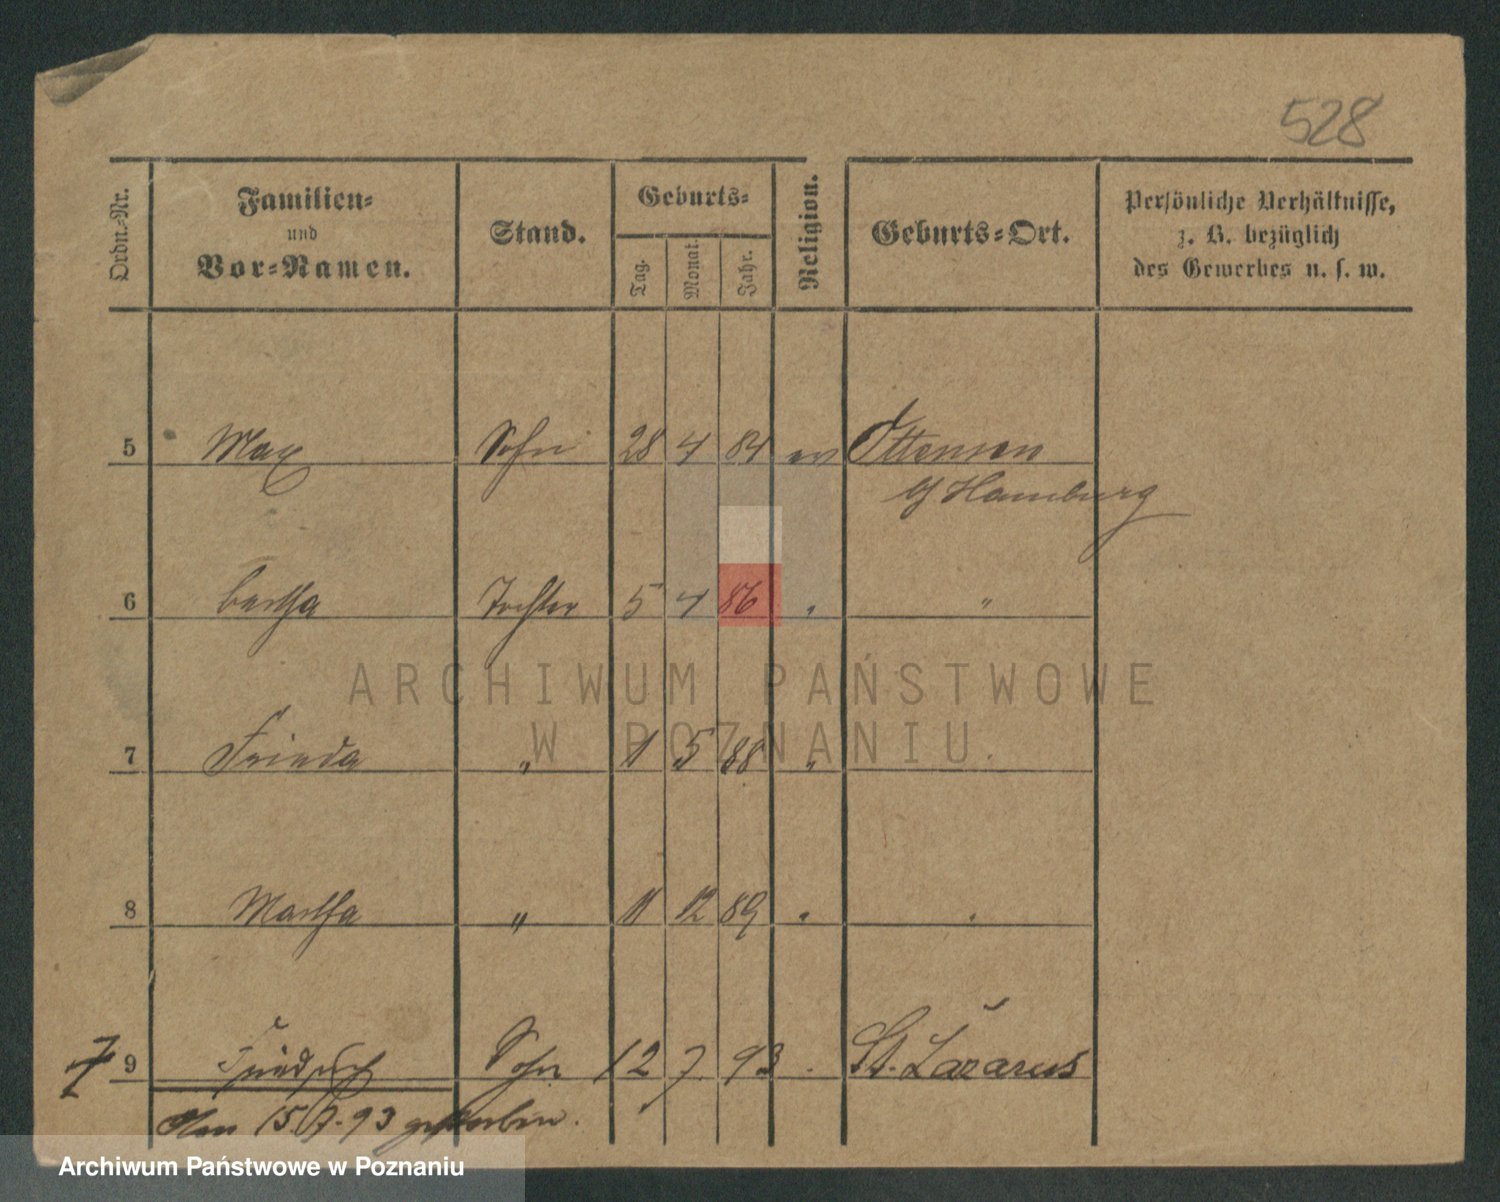 528
Ordn.-Nr.
Familien-
und
Vor-Namen.
Stand.
Geburts-
Tag.
Monat.
Jahr.
Religion.
Geburts-Ort.
Persönliche Verhältnisse,
z. B. bezüglich
des Gewerbes u. s. w.
5 Max Sohn 28 4 84 ev Ottensen
b/ Hamburg
6 Bertha Tochter 5 4 86 " "
ARCHIWUM PAŃSTWOWE
W POZNANIU.
7 Frieda " 11 5 88 "
8 Martha " 11 12 89 " "
9 Friedrich Sohn 12 7 93 St. Lazarus
15.7.93 gestorben.
Archiwum Państwowe w Poznaniu